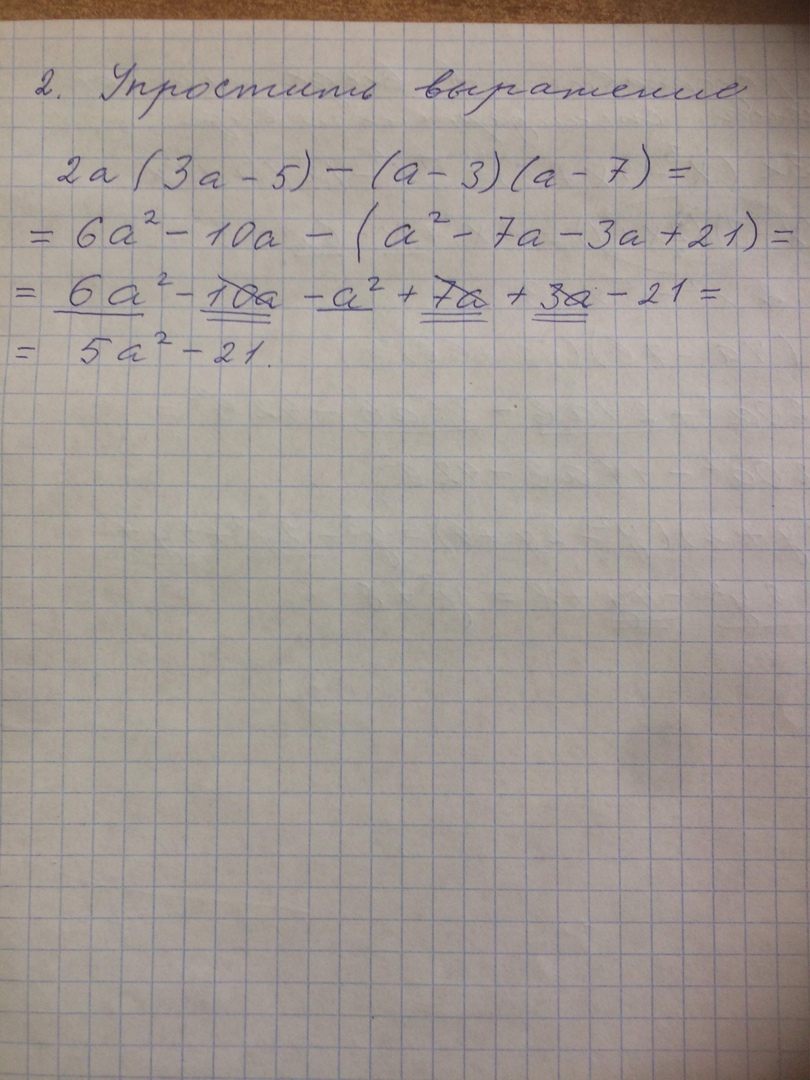 2. Упростить выражение
2a(3a-5)-(a-3)(a-7)=
=6a²-10a-(a²-7a-3a+21)=
=6a²-10a-a²+7a+3a-21=
=5a²-21.